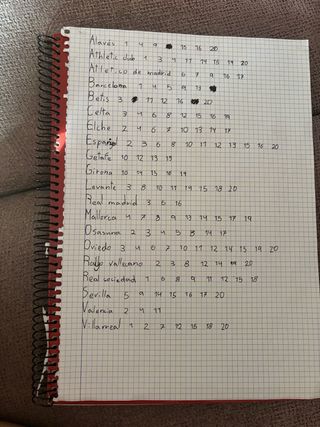 Alavés 1 4 9 15 16 20
Athletic club 1 3 4 11 14 15 19 20
Atletico de madrid 6 7 9 16 17
Barcelona 1 4 5 9 13
Betis 3 11 12 16 20
Celta 3 4 6 8 12 15 16 19
Elche 2 4 6 7 10 13 14 17
Español 2 3 6 8 9 10 11 12 13 15 16 20
Getafe 10 12 13 19
Girona 10 14 15 18 19
Levante 3 8 10 11 14 15 18 20
Real madrid 3 6 16
Mallorca 4 7 8 9 13 14 15 17 19
Osasuna 2 3 4 5 8 14 17
Oviedo 3 4 6 7 10 11 12 14 15 19 20
Rayo vallecano 2 3 8 12 14 20
Real sociedad 1 6 8 9 11 12 15 18
Sevilla 5 9 14 15 16 17 20
Valencia 2 4 11
Villarreal 1 2 7 12 16 18 20